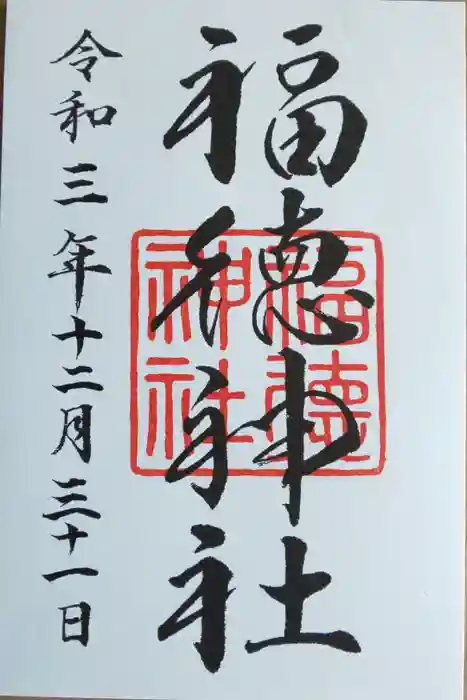 福徳神社
福徳
神社
令和三年十二月三十一日